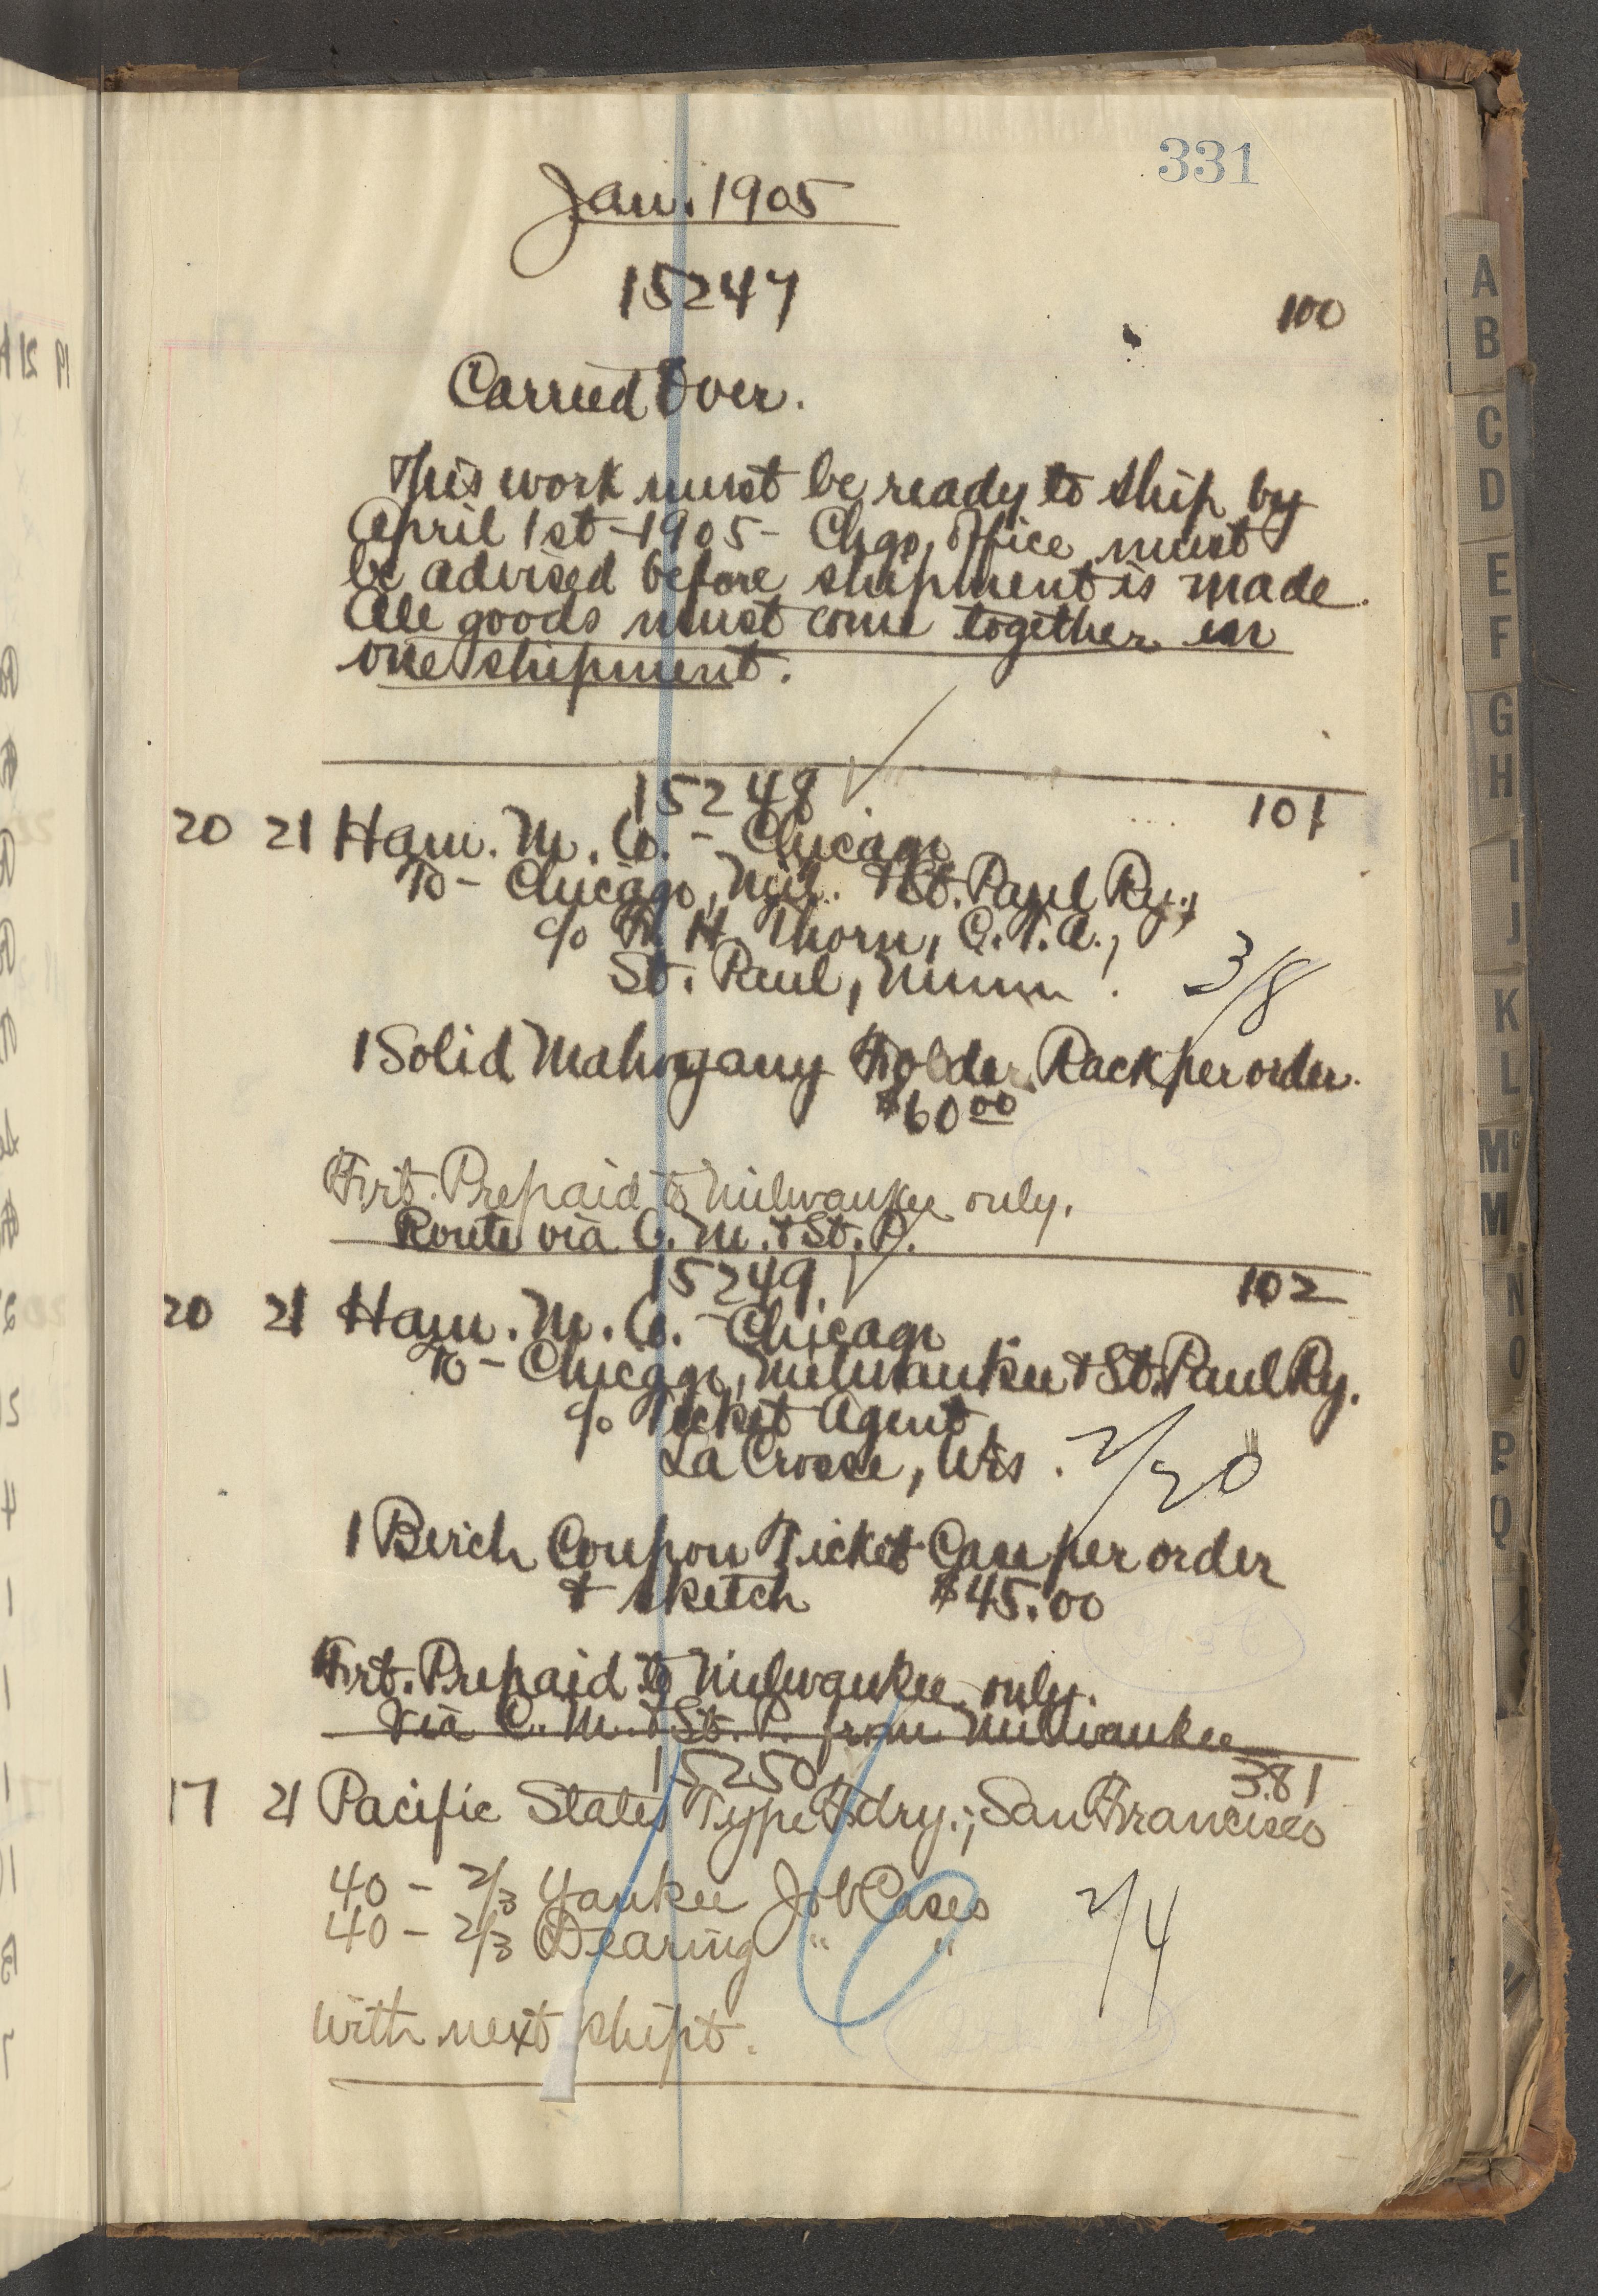 331
Jan. 1905
15247
100
Carried Over.
This work must be ready to ship by
April 1st-1905- Chgo, Office must
be advised before shipment is made.
All goods must come together in
one shipment.
15248
101
20 21 Ham. M. Co. - Chicago
To - Chicago, Mil. & St. Paul Ry.,
c/o F. H. Thorn, C.T.A.,
St. Paul, Minn.
3/8
1 Solid Mahogany Folder Rack per order.
$60.00
Frt. Prepaid to Milwaukee only.
Route via C. M. & St. P.
15249.
102
20 21 Ham. M. Co. - Chicago
To - Chicago, Milwaukee & St. Paul Ry.
c/o Ticket Agent,
La Crosse, Wis.
2/20
1 Birch Coupon Ticket Case per order
& sketch $45.00
Frt. Prepaid to Milwaukee only.
Via C. M. & St. P. from Milwaukee
15250
381
17 21 Pacific States Type Fdry.; San Francisco
40 - 2/3 Yankee Job Cases
40 - 2/3 Dearing " "
2/4
With next shipt.
A
B
C
D
E
F
G
H
I
J
K
L
Mc
M
N
O
P
Q